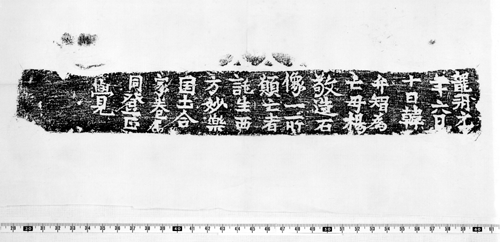 龍朔元
年六月
十日韓
弁智為
亡母楊
敬造石
像一所
願亡者
託生西
方妙樂
国土合
家眷属
同登正
見